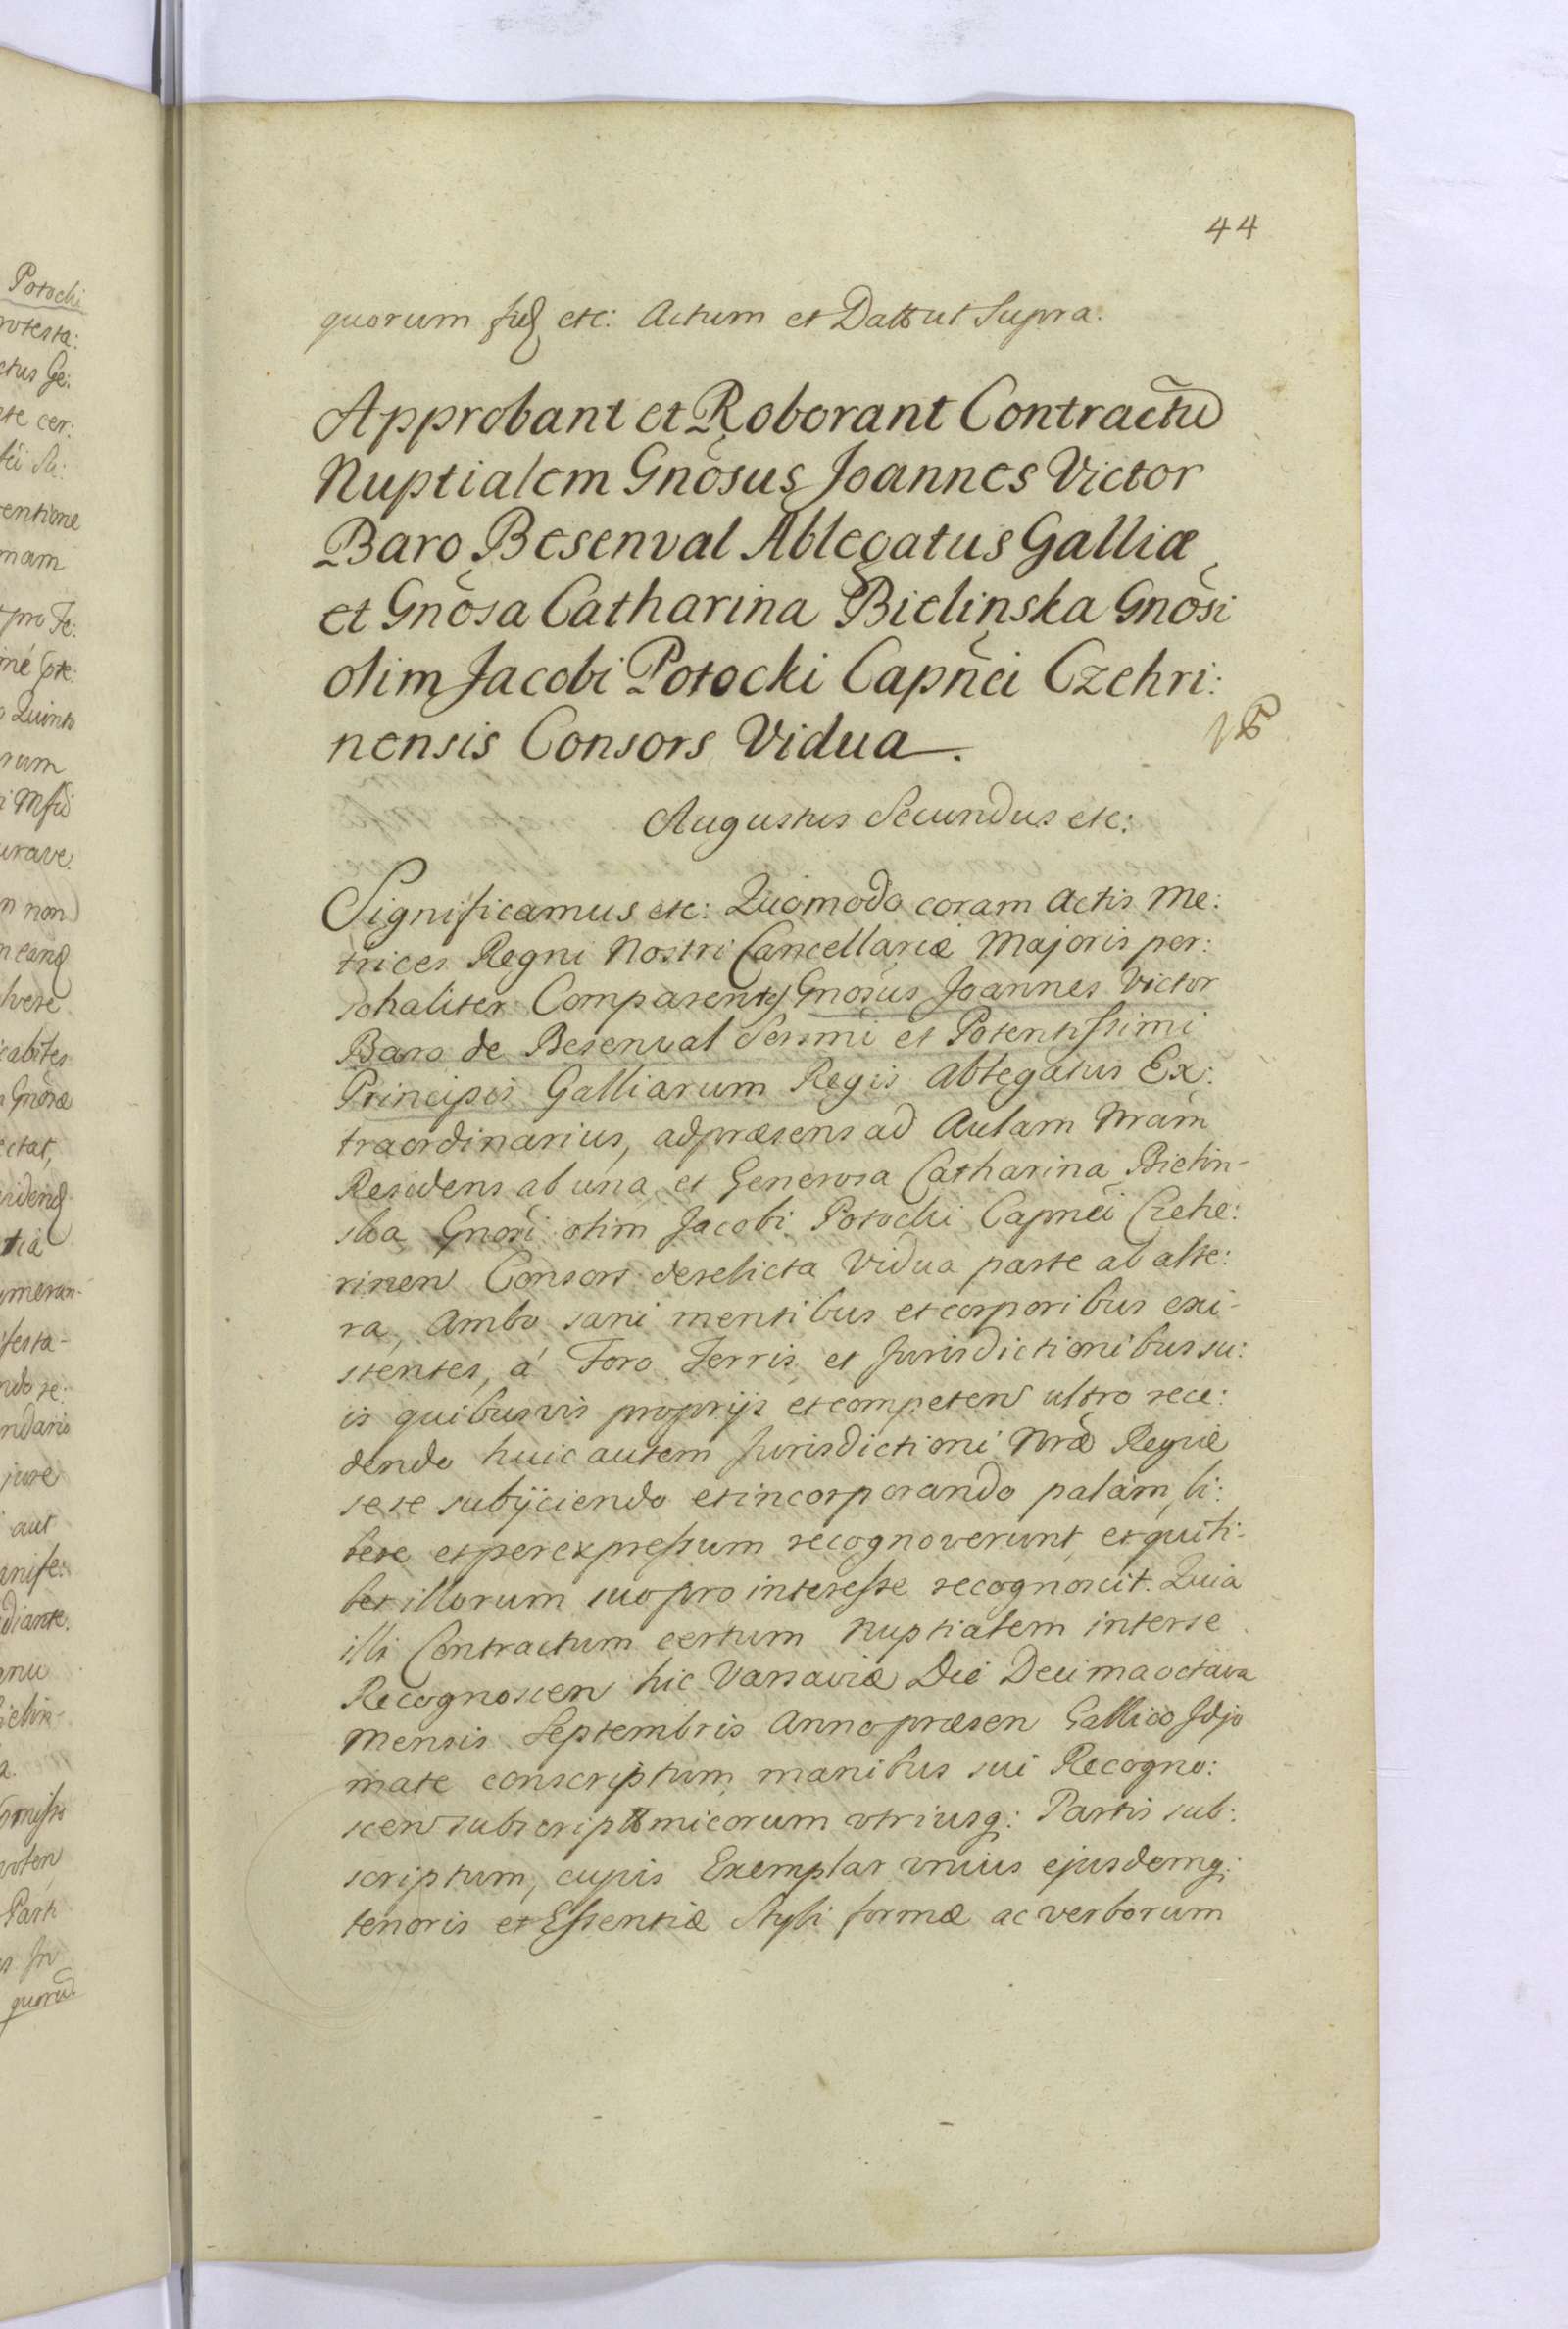 44
quorum etc: Actum et Datt ut Supra.
Approbant et Roborant Contractũ
Nuptialem Gnõsus Joannes Victor
Baro Besenval Ablegatus Galliæ
et Gnõsa Catharina Bielinska Gnõsi
olim Jacobi Potocki Capnẽi Czehri:
nensis Consors Vidua.
Augustus Secundus etc:
Significamus etc: Quomodo coram Actis Me:
trices Regni Nostri Cancellariæ Majoris per:
sonaliter Comparentes Gnosus Joannes Victor
Baro de Besenval Serñmi et Potentissimi
Principis Galliarum Regis Ablegatus Ex:
traordinarius, ad præsens ad Aulam Nram
Residens ab una, et Generosa Catharina Bielin-
ska Gnosi olim Jacobi Potocki Capnei Czehe:
rinen Consors derelicta Vidua parte ab alte:
ra, Ambo sani mentibus et corporibus exi-
stentes, á Foro Terris et Jurisdictionibus su:
is quibusvis proprijs et competen ultro rece:
dendo huic autem Jurisdictioni Nræ Regiæ
sese subijciendo et incorporando palám, li:
bere et per expressum recognoverunt, et quili-
bet illorum suo pro interesse recognoscit. Quia
illi Contractum certum Nuptialem inter se
Recognoscen hic Varsaviæ Die Decima octava
Mensis Septembris Anno præsen Gallico Idjo
mate conscriptum manibus sui Recogno:
scen subscrip Amicorum utriusq: Partis sub:
scriptum, cujus Exemplar unius ejusdemq:
tenoris et Essentiæ Styli formæ ac verborum
Potocki
rotesta:
ctus Ge:
cer:
entione
mam
pro Te:
rum
urave.
non
Gnosæ
ctat,
festa-
ndario
jure
aut
anife:
diante.
Parti
quorũ